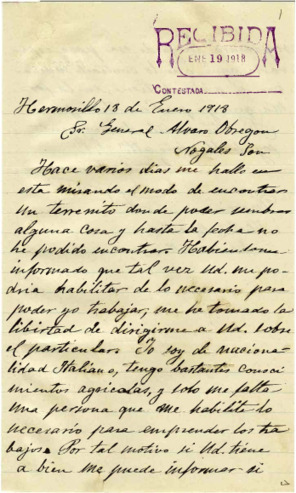 RECIBIDA
ENE 19 1918
CONTESTADA
Hermosillo 18 de Enero 1918
Sr. General Alvaro Obregon
Nogales Son
Hace varios dias me hallo en
esta mirando el modo de encontrar
un terrenito donde poder sembrar
alguna cosa y hasta la fecha no
he podido encontrar. Habiendome
informado que tal vez Ud. me po-
dria habilitar de lo necesario para
poder yo trabajar, me he tomado la
libertad de dirigirme a Ud. sobre
el particular. Yo soy de naciona-
lidad Italiano, tengo bastantes conoci
mientos agricolas, y solo me falta
una persona que me habilite lo
necesario para emprender los tra
bajos. Por tal motivo si Ud. tiene
a bien me puede informar si